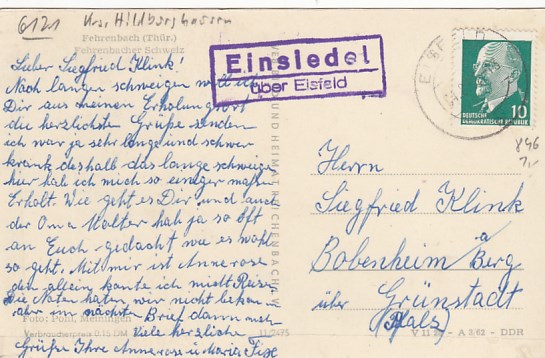 6121 Krs. Hildburghausen
Fehrenbach (Thür.)
Fehrenbacher Schweiz
Lieber Siegfried Klink!
Nach langen schweigen will ich
Dir aus meinen Erholungsort
die herzlichste Grüße senden
ich war ja sehr lange und schwer
krank deshalb das lange schweigen
hier hab ich mich so einiger maßen
Erholt. Wie geht es Dir und auch
der Oma Walter hab ja so oft
an Euch gedacht wie es wohl
so geht. Mit mir ist Annerose
den allein konte ich nicht Reisen
Die Noten haten wir nicht bekomen
aber im nächst Brief dann mehr
Viele herzliche
Grüße Ihre Annerose u Maria
Foto: Pohl, Meiningen
Verbraucherpreis 0,15 DM
Einsiedel
über Eisfeld
EISFELD
DEUTSCHE
DEMOKRATISCHE REPUBLIK
10
Herrn
Siegfried Klink
Bobenheim a Berg
über Grünstadt
(Pfalz)
A 3/62 - DDR